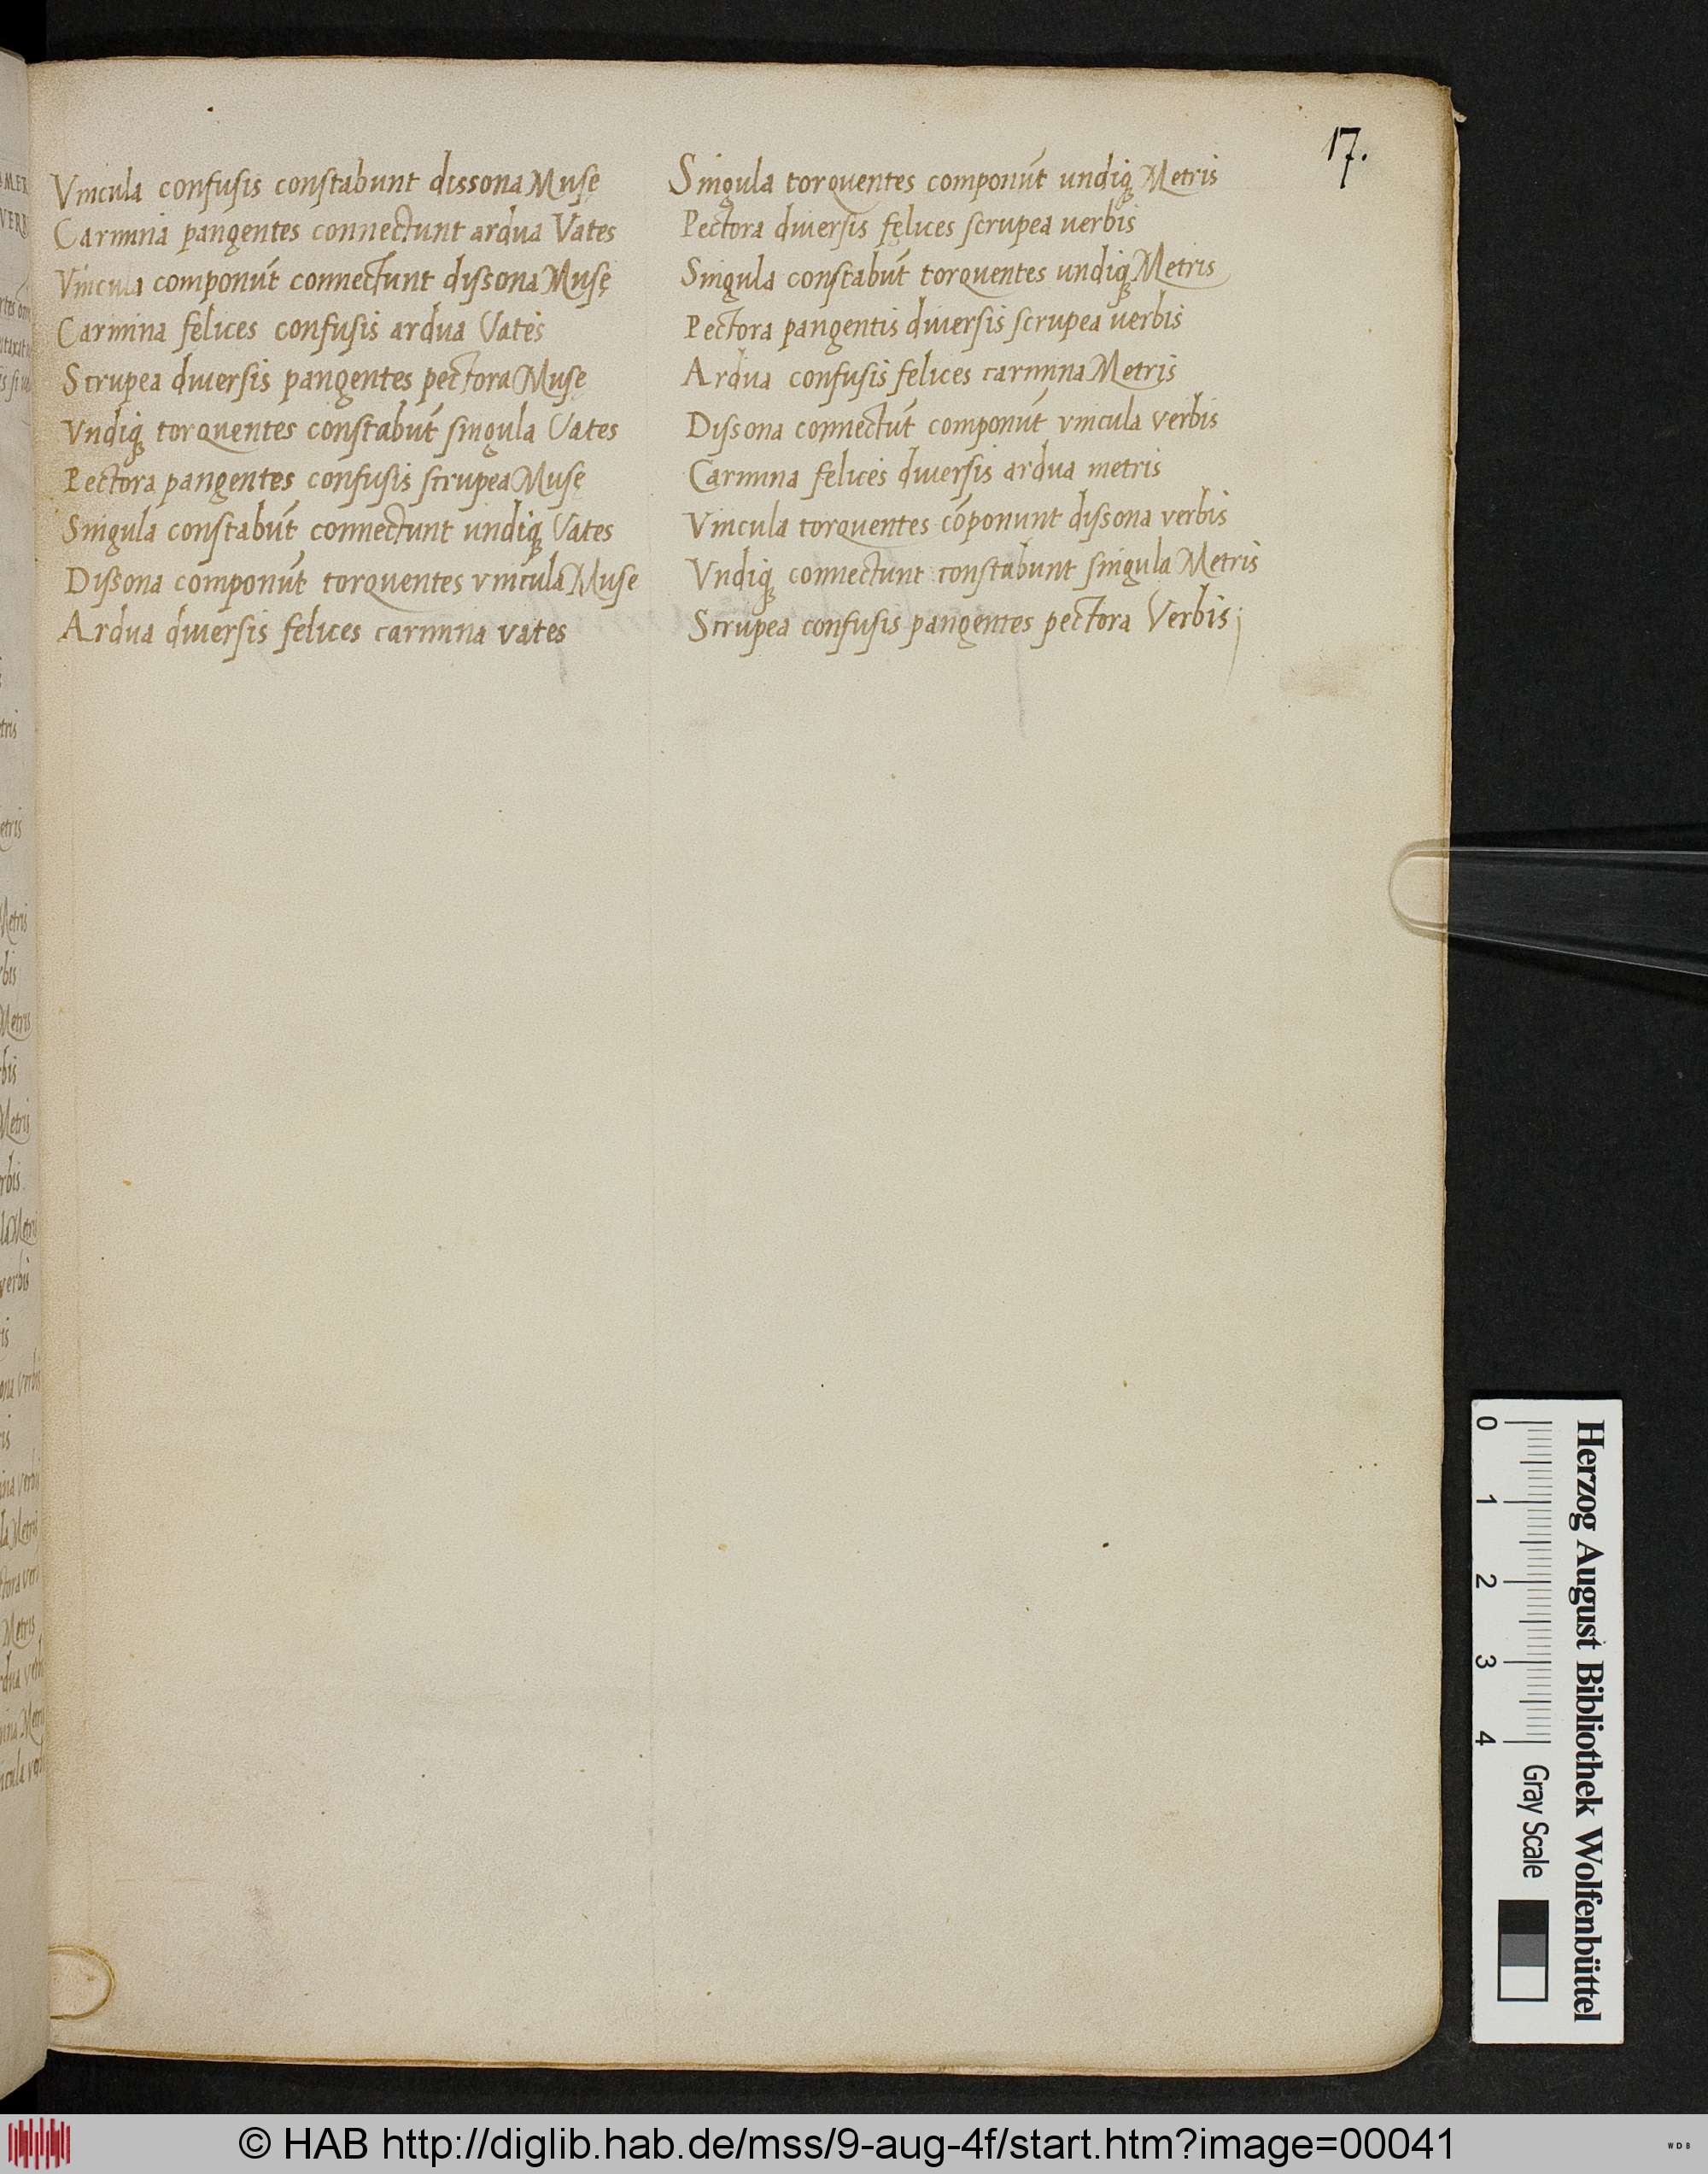 17.
Vincula confusis constabunt dissona Musę
Carmina pangentes connectunt ardua Vates
Vincula componūt connectunt dissona Musę
Carmina felices confusis ardua Vates
Scrupea diuersis pangentes pectora Musę
Vndiq; torquentes constabūt singula Vates
Pectora pangentes confusis scrupea Musę
Singula constabūt connectunt undiq; Vates
Dissona componūt torquentes vincula Muse
Ardua diuersis felices carmina vates
Singula torquentes componūt undiq; Metris
Pectora diuersis fęlices scrupea uerbis
Singula constabūt torquentes undiq; Metris
Pectora pangentis diuersis scrupea uerbis
Ardua confusis felices carmina Metris
Dissona connectūt componūt vincula verbis
Carmina felices diuersis ardua metris
Vincula torquentes cōponunt dissona verbis
Vndiq; connectunt constabunt singula Metris
Scrupea confusis pangentes pectora Verbis;
Herzog August Bibliothek Wolfenbüttel
0 1 2 3 4 Gray Scale
© HAB http://diglib.hab.de/mss/9-aug-4f/start.htm?image=00041
WDB